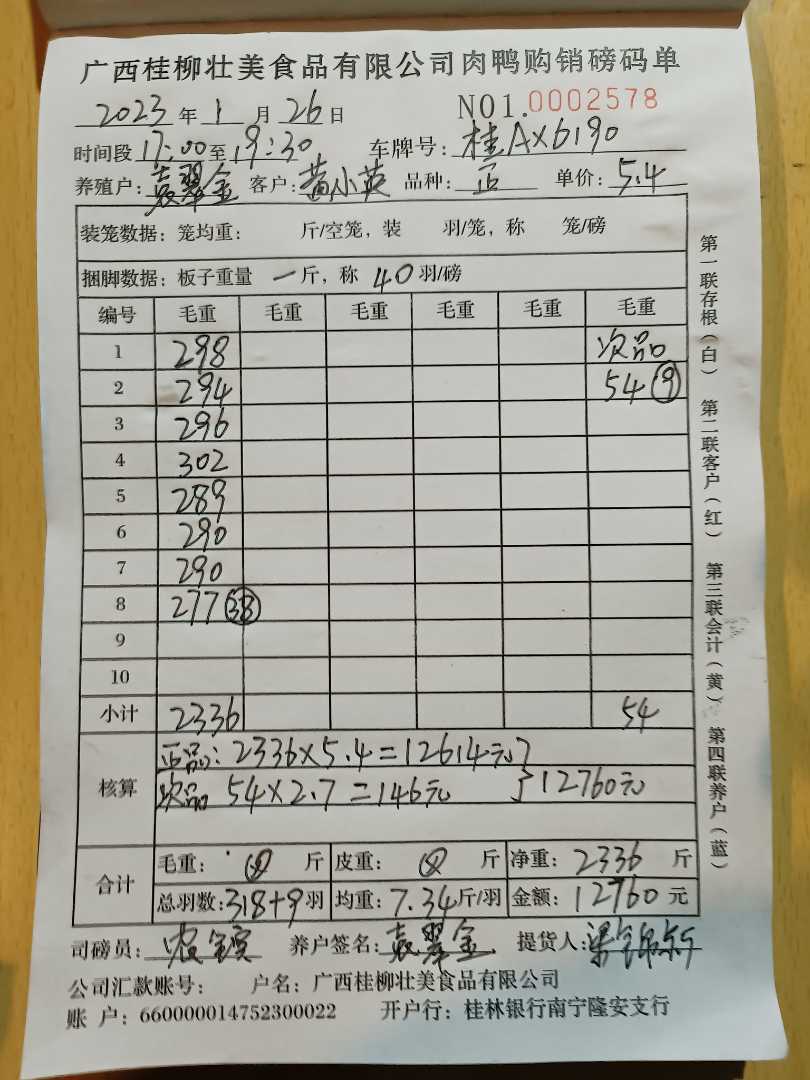 广西桂柳壮美食品有限公司肉鸭购销磅码单
2023 年 1 月 26 日 NO1.0002578
时间段 17:00 至 19:30 车牌号: 桂AX6190
养殖户: 袁翠金 客户: 黄小英 品种: 正 单价: 5.4
装笼数据: 笼均重: 斤/空笼, 装 羽/笼, 称 笼/磅
捆脚数据: 板子重量 一 斤, 称 40 羽/磅
编号 毛重 毛重 毛重 毛重 毛重 毛重
1 298 次品
2 294 54 ⑨
3 296
4 302
5 289
6 290
7 290
8 277 ㊳
9
10
小计 2336 54
核算
正品: 2336×5.4=12614元
次品 54×2.7=146元 }12760元
合计
毛重: 斤 皮重: 斤 净重: 2336 斤
总羽数: 318+9 羽 均重: 7.34 斤/羽 金额: 12760 元
司磅员: 养户签名: 袁翠金 提货人:
公司汇款账号: 户名: 广西桂柳壮美食品有限公司
账 户: 660000014752300022 开户行: 桂林银行南宁隆安支行
第一联存根(白) 第二联客户(红) 第三联会计(黄) 第四联养户(蓝)